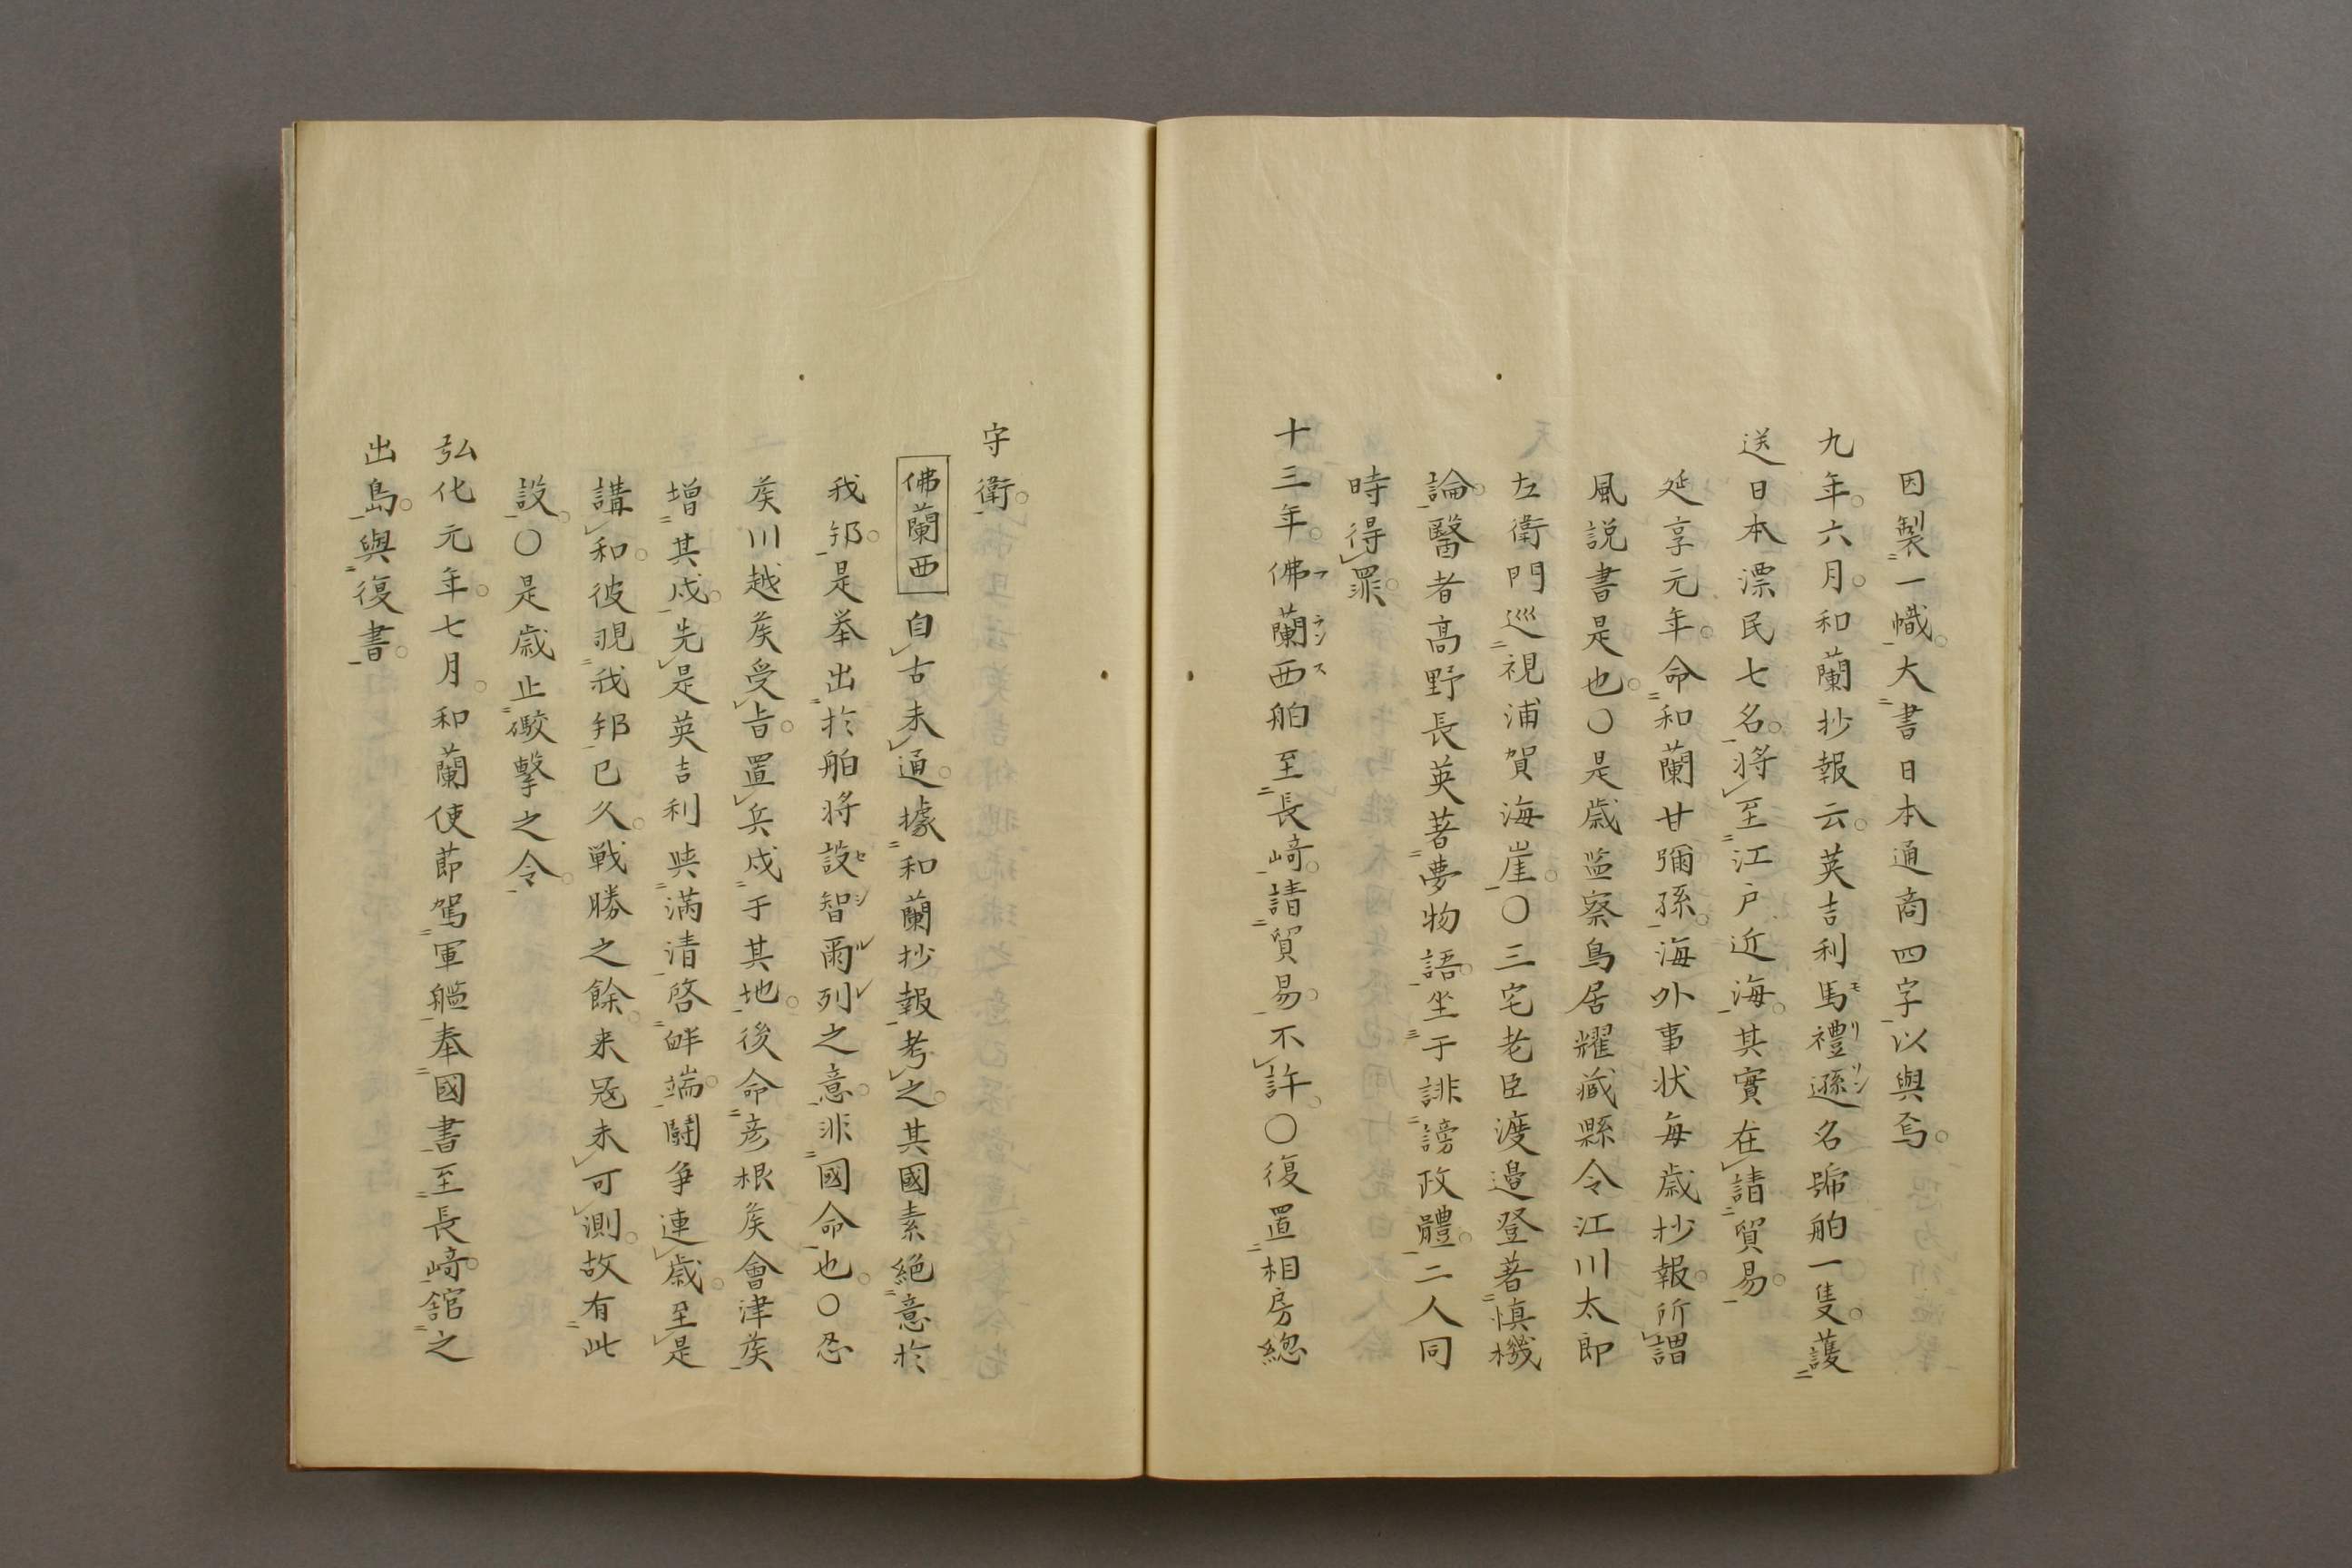 因製一幟。大書日本通商四字以與焉。
九年。六月。和蘭抄報云。英吉利馬禮遜名號舶一隻。護
送日本漂民七名。將至江戸近海。其實在請貿易。
延享元年。命和蘭甘彌孫。海外事状毎歳抄報。所謂
風説書是也。〇是歳监察鳥居耀藏縣令江川太郎
左衛門巡視浦賀海崖。〇三宅老臣渡邉登著慎機
論。醫者高野長英著夢物語。坐于誹謗政體。二人同
時得罪。
十三年。佛蘭西舶至長崎。請貿易。不許。〇復置相房総
守衛。
佛蘭西 自古未通。據和蘭抄報考之。其國素絶意於
我邦。是挙出於舶将設智爾列之意。非國命也。〇忍
矦川越矦受㫖。置兵戍于其地。後命彦根矦會津矦
増其戍。先是英吉利与満清啓衅端。鬪爭連歳。至是
講和。彼覗我邦已久。戦勝之餘。来冦未可測。故有此
設。〇是歳止礮擊之令。
弘化元年。七月。和蘭使節駕軍艦奉國書至長崎。舘之
出島。與復書。